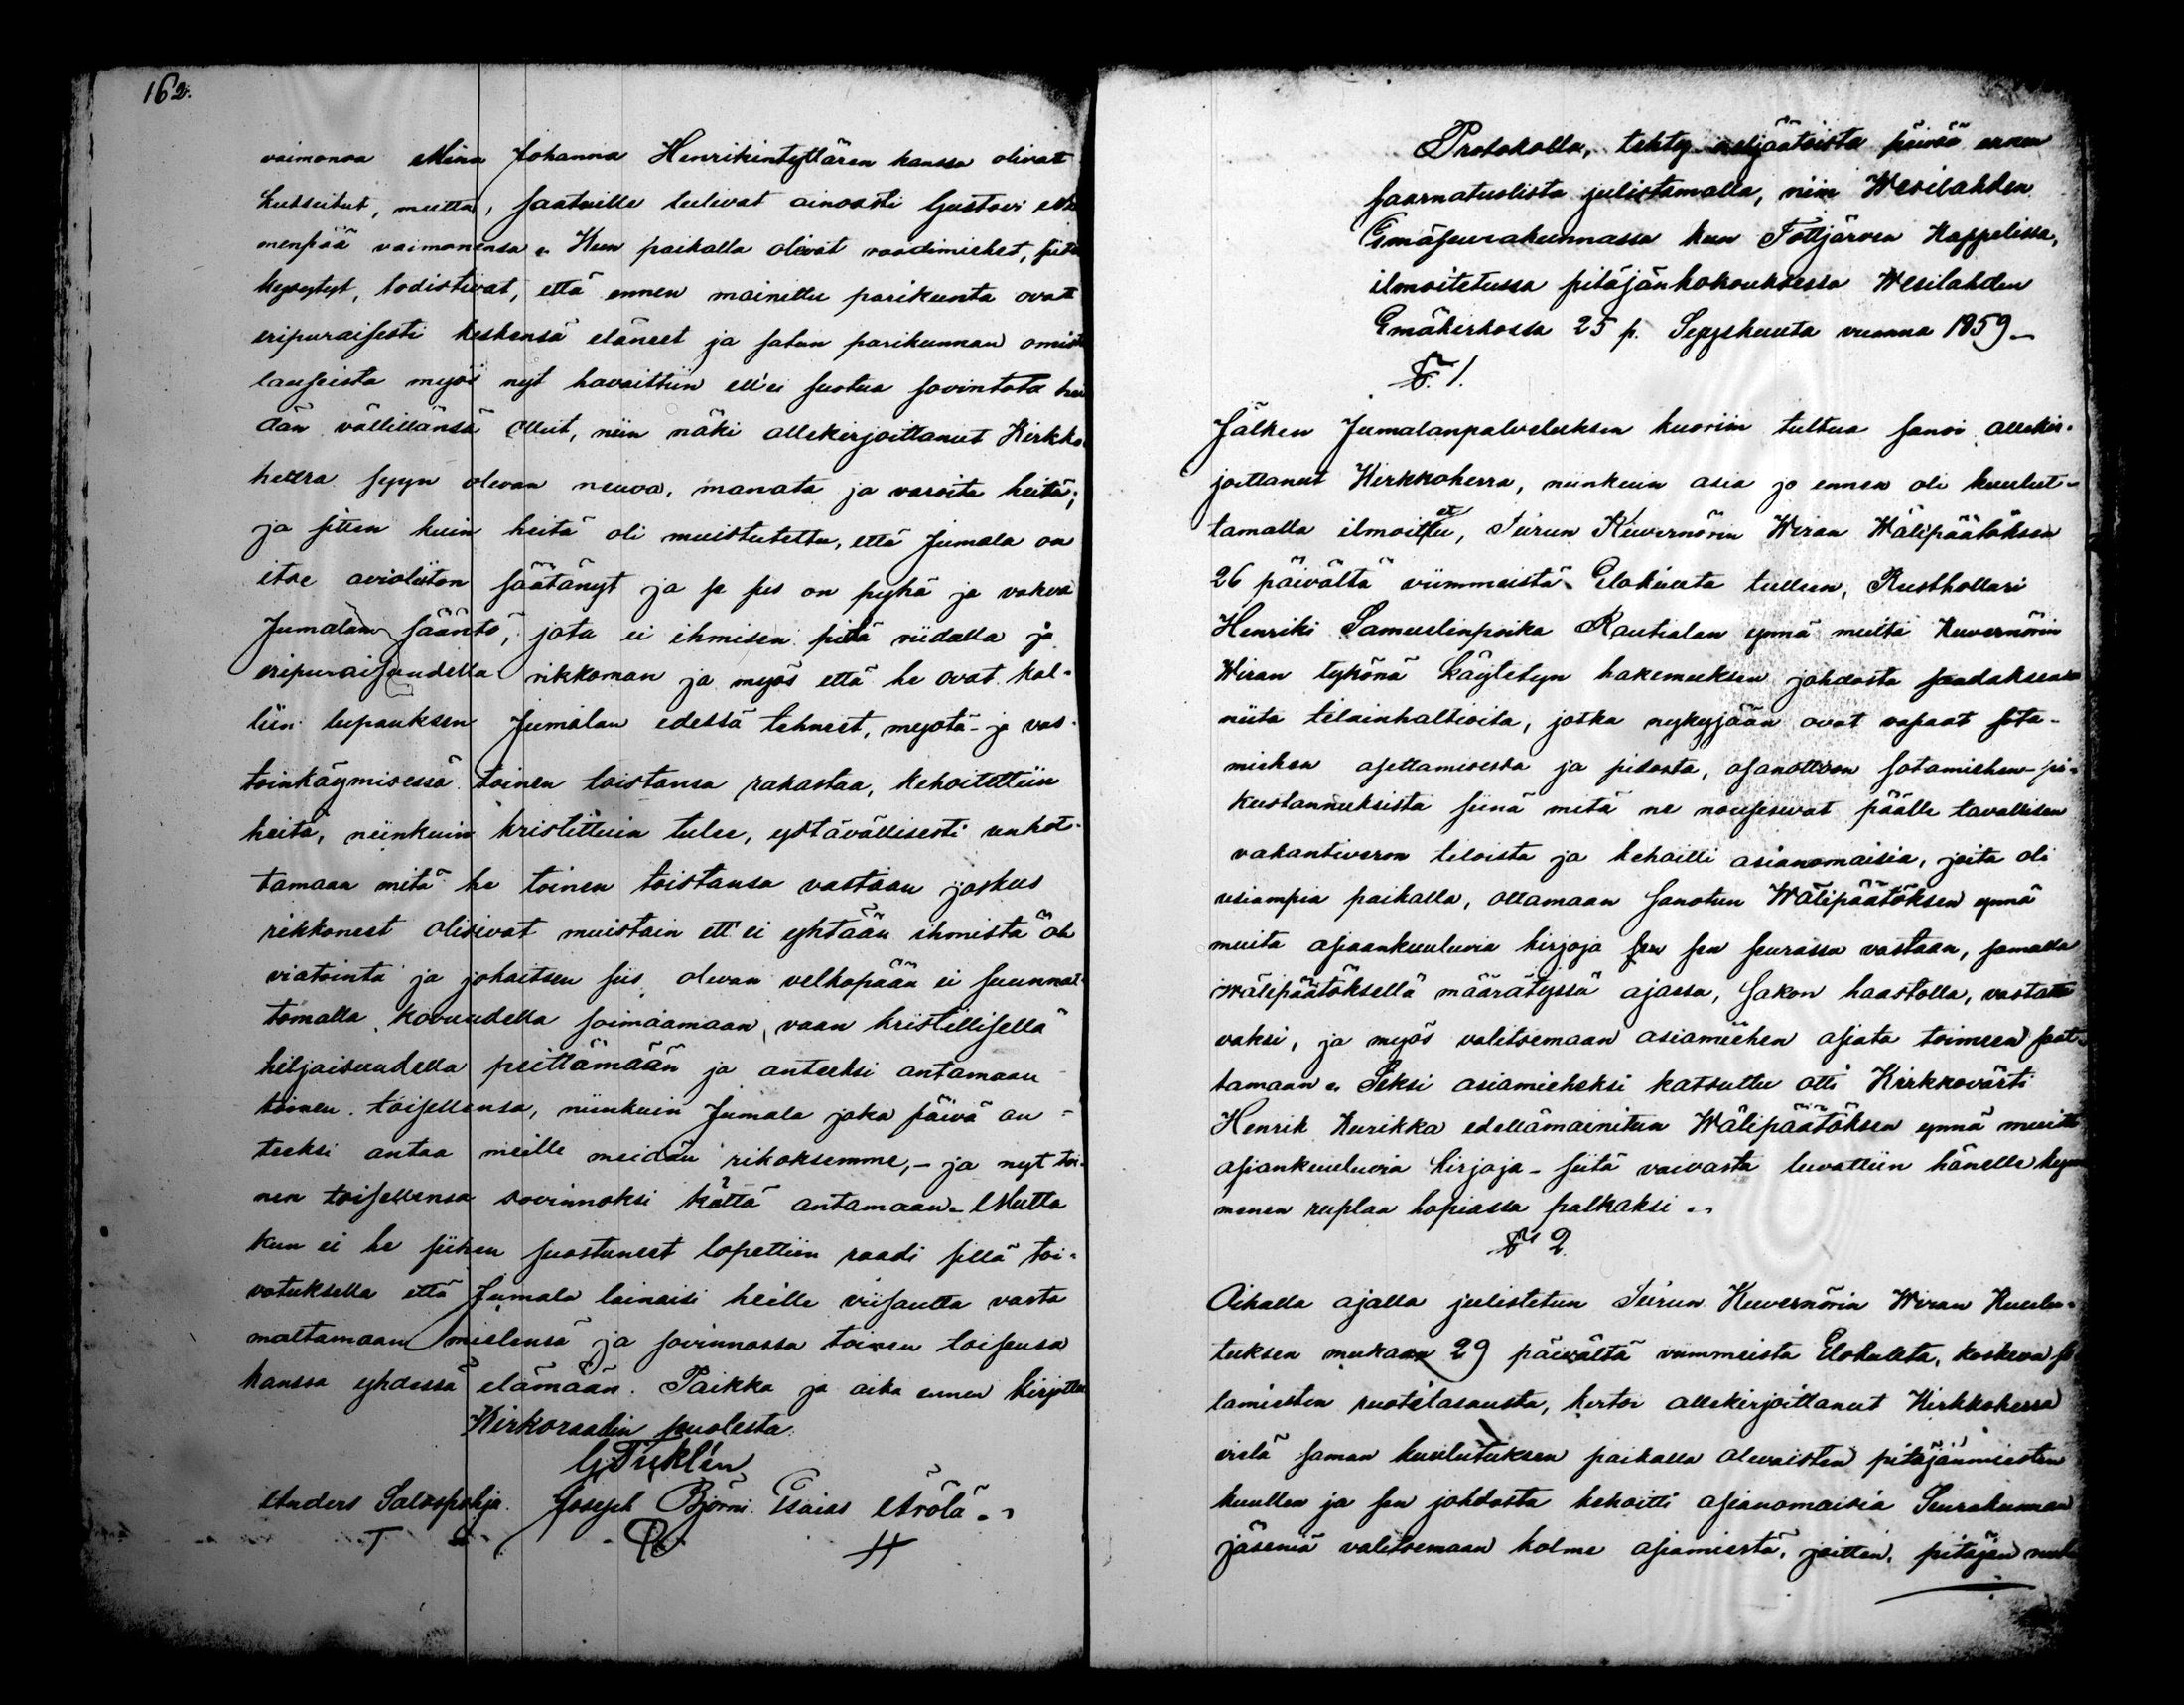 162.
vaimonsa Mina Johanna Henrikintyttären kanssa olivat
kutsutut, mutta, saatuille tulivat ainoasti Gustavi
menpää vaimonensa. Kun paikalla olivat raadimiehet, siitä
kysytyt, todistivat, että ennen mainittu parikunta ovat
eripuraisesti keskensä eläneet ja satun parikunnan omista
lauseista myös nyt havaittiin ett'ei suotua sovintota hei
dän välillänsä ollut, niin näki allekirjoittanut Kirkko
herra syyn olevan neuvoa, manata ja varoita heitä;
ja sitten kuin heitä oli muistutettu, että Jumala on
itse avioliiton säätänyt ja se siis on pyhä ja vakva
Jumalan sääntö, jota ei ihmisen pidä riidalla ja
eripuraisuudella rikkoman ja myös että he ovat kal-
liin lupauksen Jumalan edessä tehneet, myötä- ja vas-
toinkäymisessä toinen toistansa rakastaa, kehoitettiin
heitä, niinkuin kristittyin tulee, ystävällisesti unhot-
tamaan mitä he toinen toistansa vastaan joskus
rikkoneet olisivat muistain ett'ei yhtään ihmistä ole
viatointa ja jokaitsen siis olevan velkapään ei suunnat-
tomalla kovuudella soimaamaan, vaan kristillisellä
hiljaisuudella peittämään ja anteeksi antamaan
toinen toisellensa, niinkuin Jumala joka päivä an-
teeksi antaa meille meidän rikoksemme,- ja nyt toi-
nen toisellensa sovinnoksi kättä antamaan. Mutta
kun ei he siihen suostuneet lopettiin raadi sillä toi-
votuksella että Jumala lainaisi heille viisautta vasta
maltamaan mielensä ja sovinnossa toinen toisensa
kanssa yhdessä elämään. Paikka ja aika ennen kirjotta
Kirkoraadin puolesta.
G. Ticklén
Anders Salospohja. Joseph Björni. Esaias Arölä.
Protokolla, tehty neljäätoista päivää ennen
saarnatuolista julistamalla, niin Wesilahden
Emäseurakunnassa kun Tottjärven Kappelissa,
ilmoitetussa pitäjänkokouksessa Wesilahden
Emäkirkossa 25 p. Syyskuuta vuonna 1859_
§ 1.
Jälken Jumalanpalveluksen kuoriin tultua sanoi allekir-
joittanut Kirkkoherra, niinkuin asia jo ennen oli kuulut-
tamalla ilmoitettu, Turun Kuvernörin Wiran Wälipäätöksen
26 päivältä viimmeistä Elokuuta tulleen, Rusthollari
Henriki Samuelinpoika Rautialan ynnä muilta Kuvernörin
Wiran tykönä käytetyn hakemuksen johdosta saadaksensa
niitä tilainhaltioita, jotka nykyjään ovat vapaat sota-
miehen asettamisesta ja pidosta, osanottoon sotamiehen-pi-
kustannuksista siinä mitä ne nousisivat päälle tavallisen
vakantiveron tiloista ja kehoitti asianomaisia, joita oli
usiampia paikalla, ottamaan sanotun Wälipäätöksen ynnä
muita asiaankuuluvia kirjoja sen seurassa vastaan, samalla
Wälipäätöksellä määrätyssä ajassa, sakon haastolla, vastatta
vaksi, ja myös valitsemaan asiamiehen asiata toimeen saat-
tamaan. Seksi asiamieheksi katsuttu otti Kirkkovärti
Henrik Kurikka edellämainitun Wälipäätöksen ynnä muitta
asiankuuluvia kirjoja - siitä vaivasta luvattiin hänelle kym
menen ruplaa hopiassa palkaksi.
§ 2
Oikalla ajalla julistetun Turun Kuvernörin Wiran Kuulu-
tuksen mukaan 29 päivältä viimmeista Elokuuta, koskeva so
tamiesten ruotitasausta, kertoi allekirjoittanut Kirkkoherra
vielä saman kuulutuksen paikalla olevaisten pitäjänmiesten
kuullen ja sen johdosta kehoitti asianomaisia Seurakunnan
jäseniä valitsemaan kolme asiamiestä, joitten, pitäjän